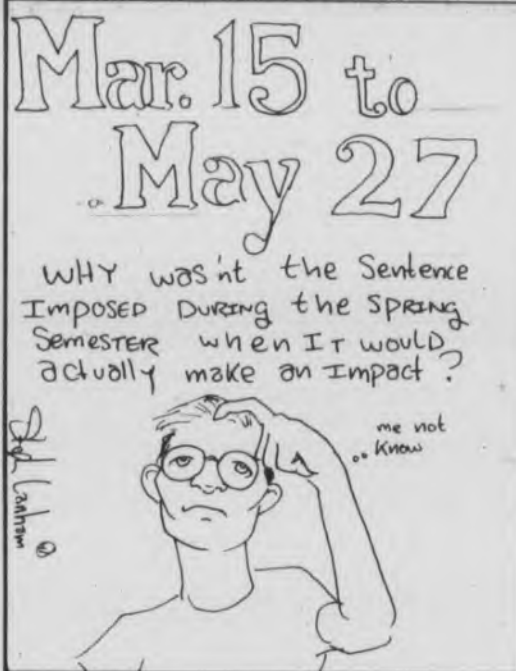 Mar. 15 to
May 27
WHY was'nt the Sentence
IMPOSED DURING the SPRING
SEMESTER when IT WOULD
actually make an Impact?
me not
.. Know
Lanham